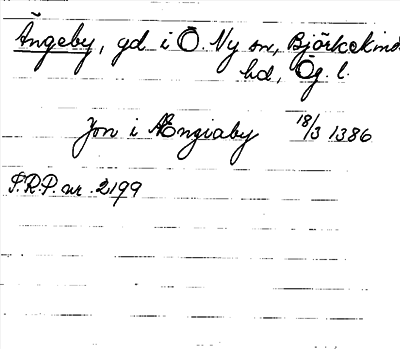 Ängeby, gd i Ö. Ny sn, Björkekinds
hd, Ög. l.
Jon i Ængiaby 18/3 1386
P.R.P. nr. 2199